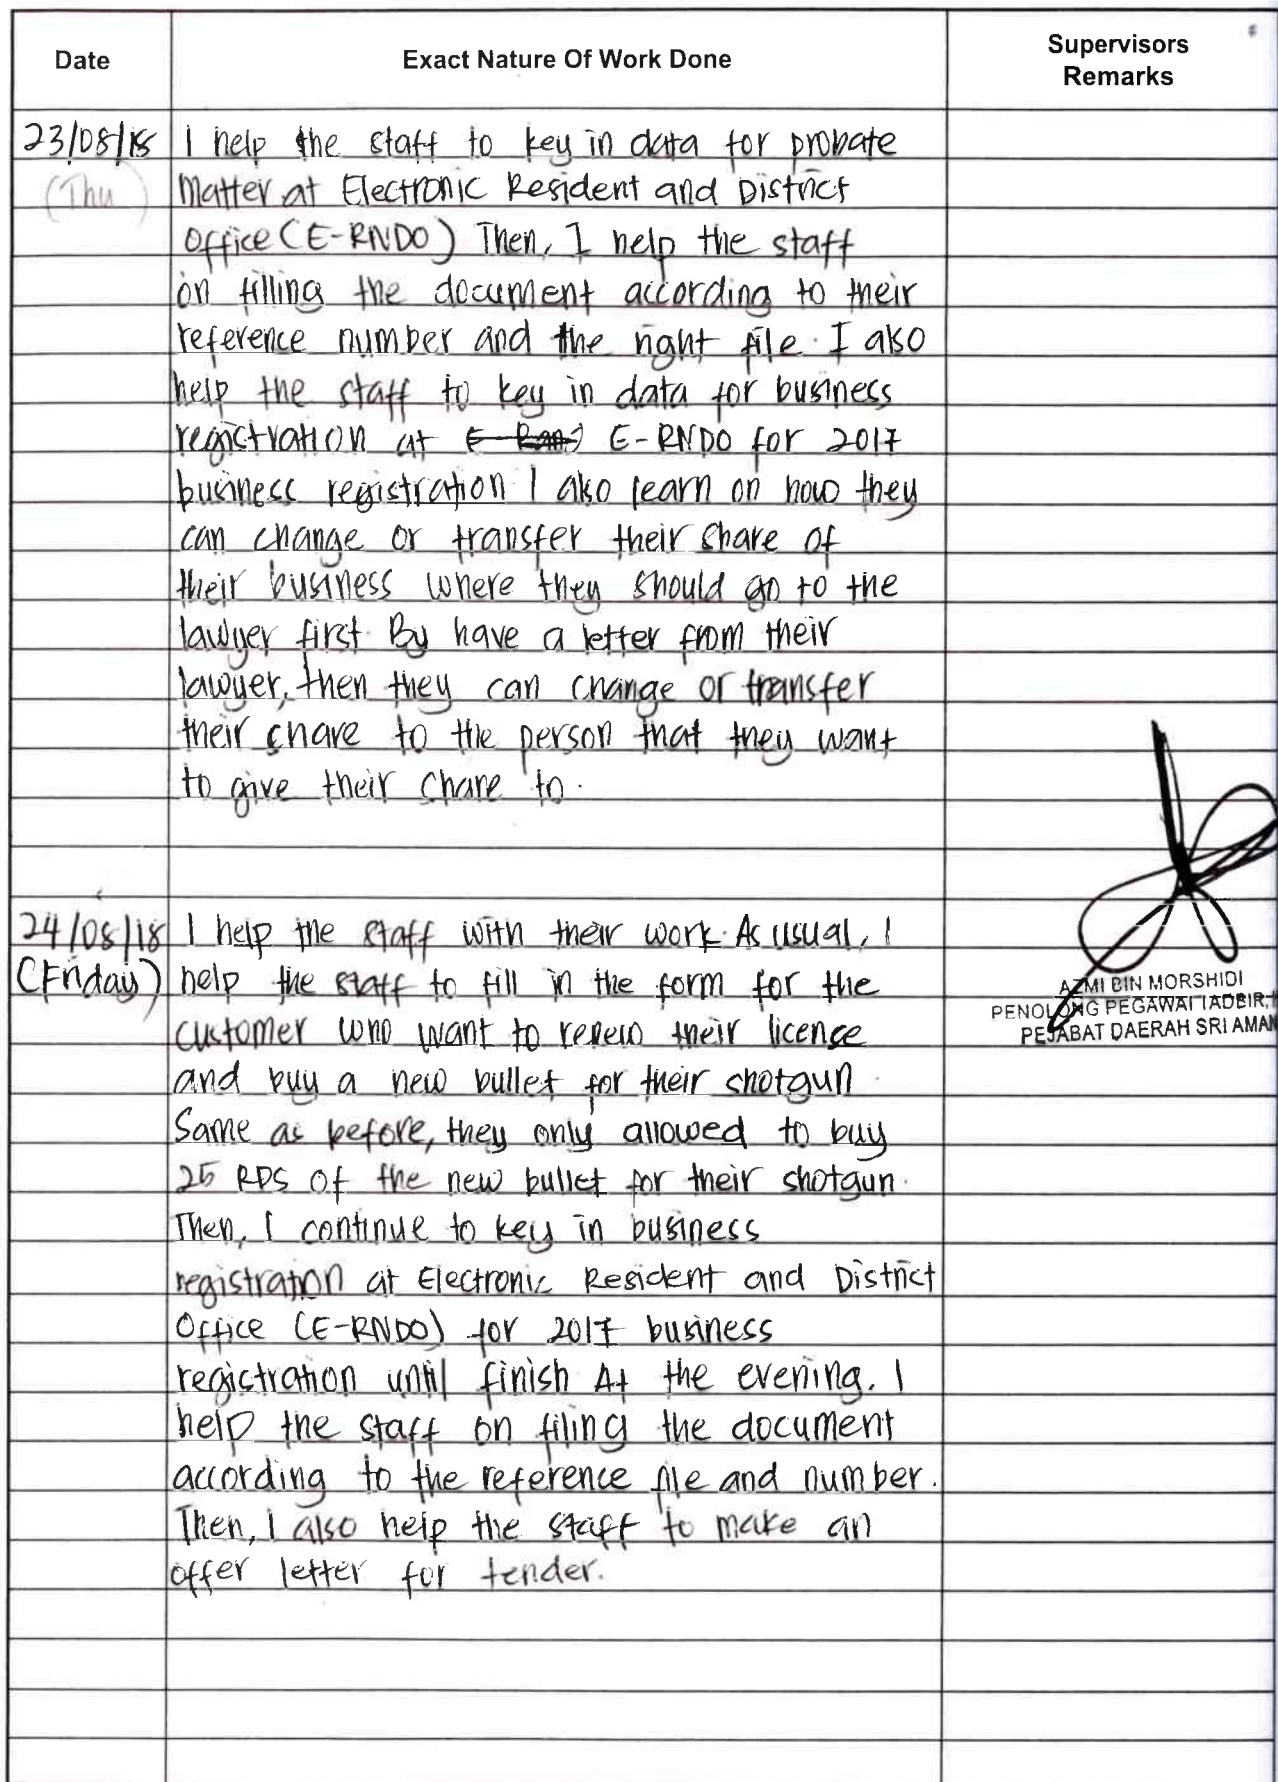 Date
Exact Nature Of Work Done
Supervisors
Remarks
23/08/18
(Thu)
I help the staff to key in data for probate
Matter at Electronic Resident and District
Office (E-RNDO) Then, I help the staff
on filling the document according to their
reference number and the right file. I also
help the staff to key in data for business
registration at E-RNDO for 2017
business registration I also learn on how they
can change or transfer their share of
their business where they should go to the
lawyer first. By have a letter from their
lawyer, then they can change or transfer
their share to the person that they want
to give their share to.
24/08/18
(Friday)
I help the staff with their work. As usual, I
help the staff to fill in the form for the
customer who want to renew their licence
and buy a new bullet for their shotgun.
Same as before, they only allowed to buy
25 RDS of the new bullet for their shotgun.
Then, I continue to key in business
registration at Electronic Resident and District
Office (E-RNDO) for 2017 business
registration until finish At the evening, I
help the staff on filing the document
according to the reference file and number.
Then, I also help the staff to make an
offer letter for tender.
AZMI BIN MORSHIDI
PENOLONG PEGAWAI TADBIR,
PEJABAT DAERAH SRI AMAN